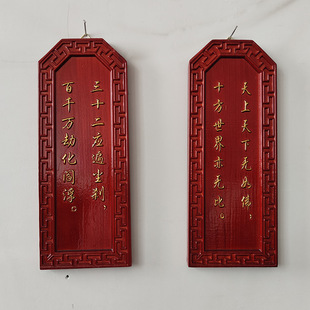 天上天下无如佛；
十方世界亦无比。
三十二应遍尘刹；
百千万劫化阎浮。